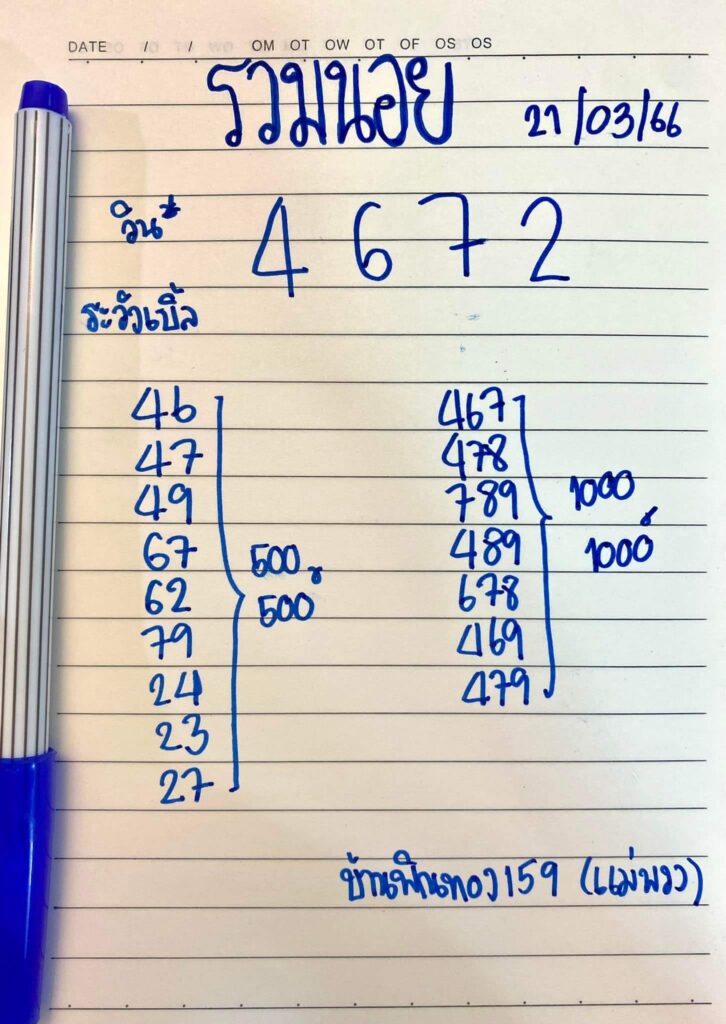 DATE / / OM OT OW OT OF OS OS
รวมนอย 21/03/66
วิน* 4 6 7 2
ระวังเบิ้ล
46 467
47 478
49 789 1000 x
67 489 1000
500 x
62 678
500
79 469
24 479
23
27
บ้านพินทอง159 (แม่พวง)